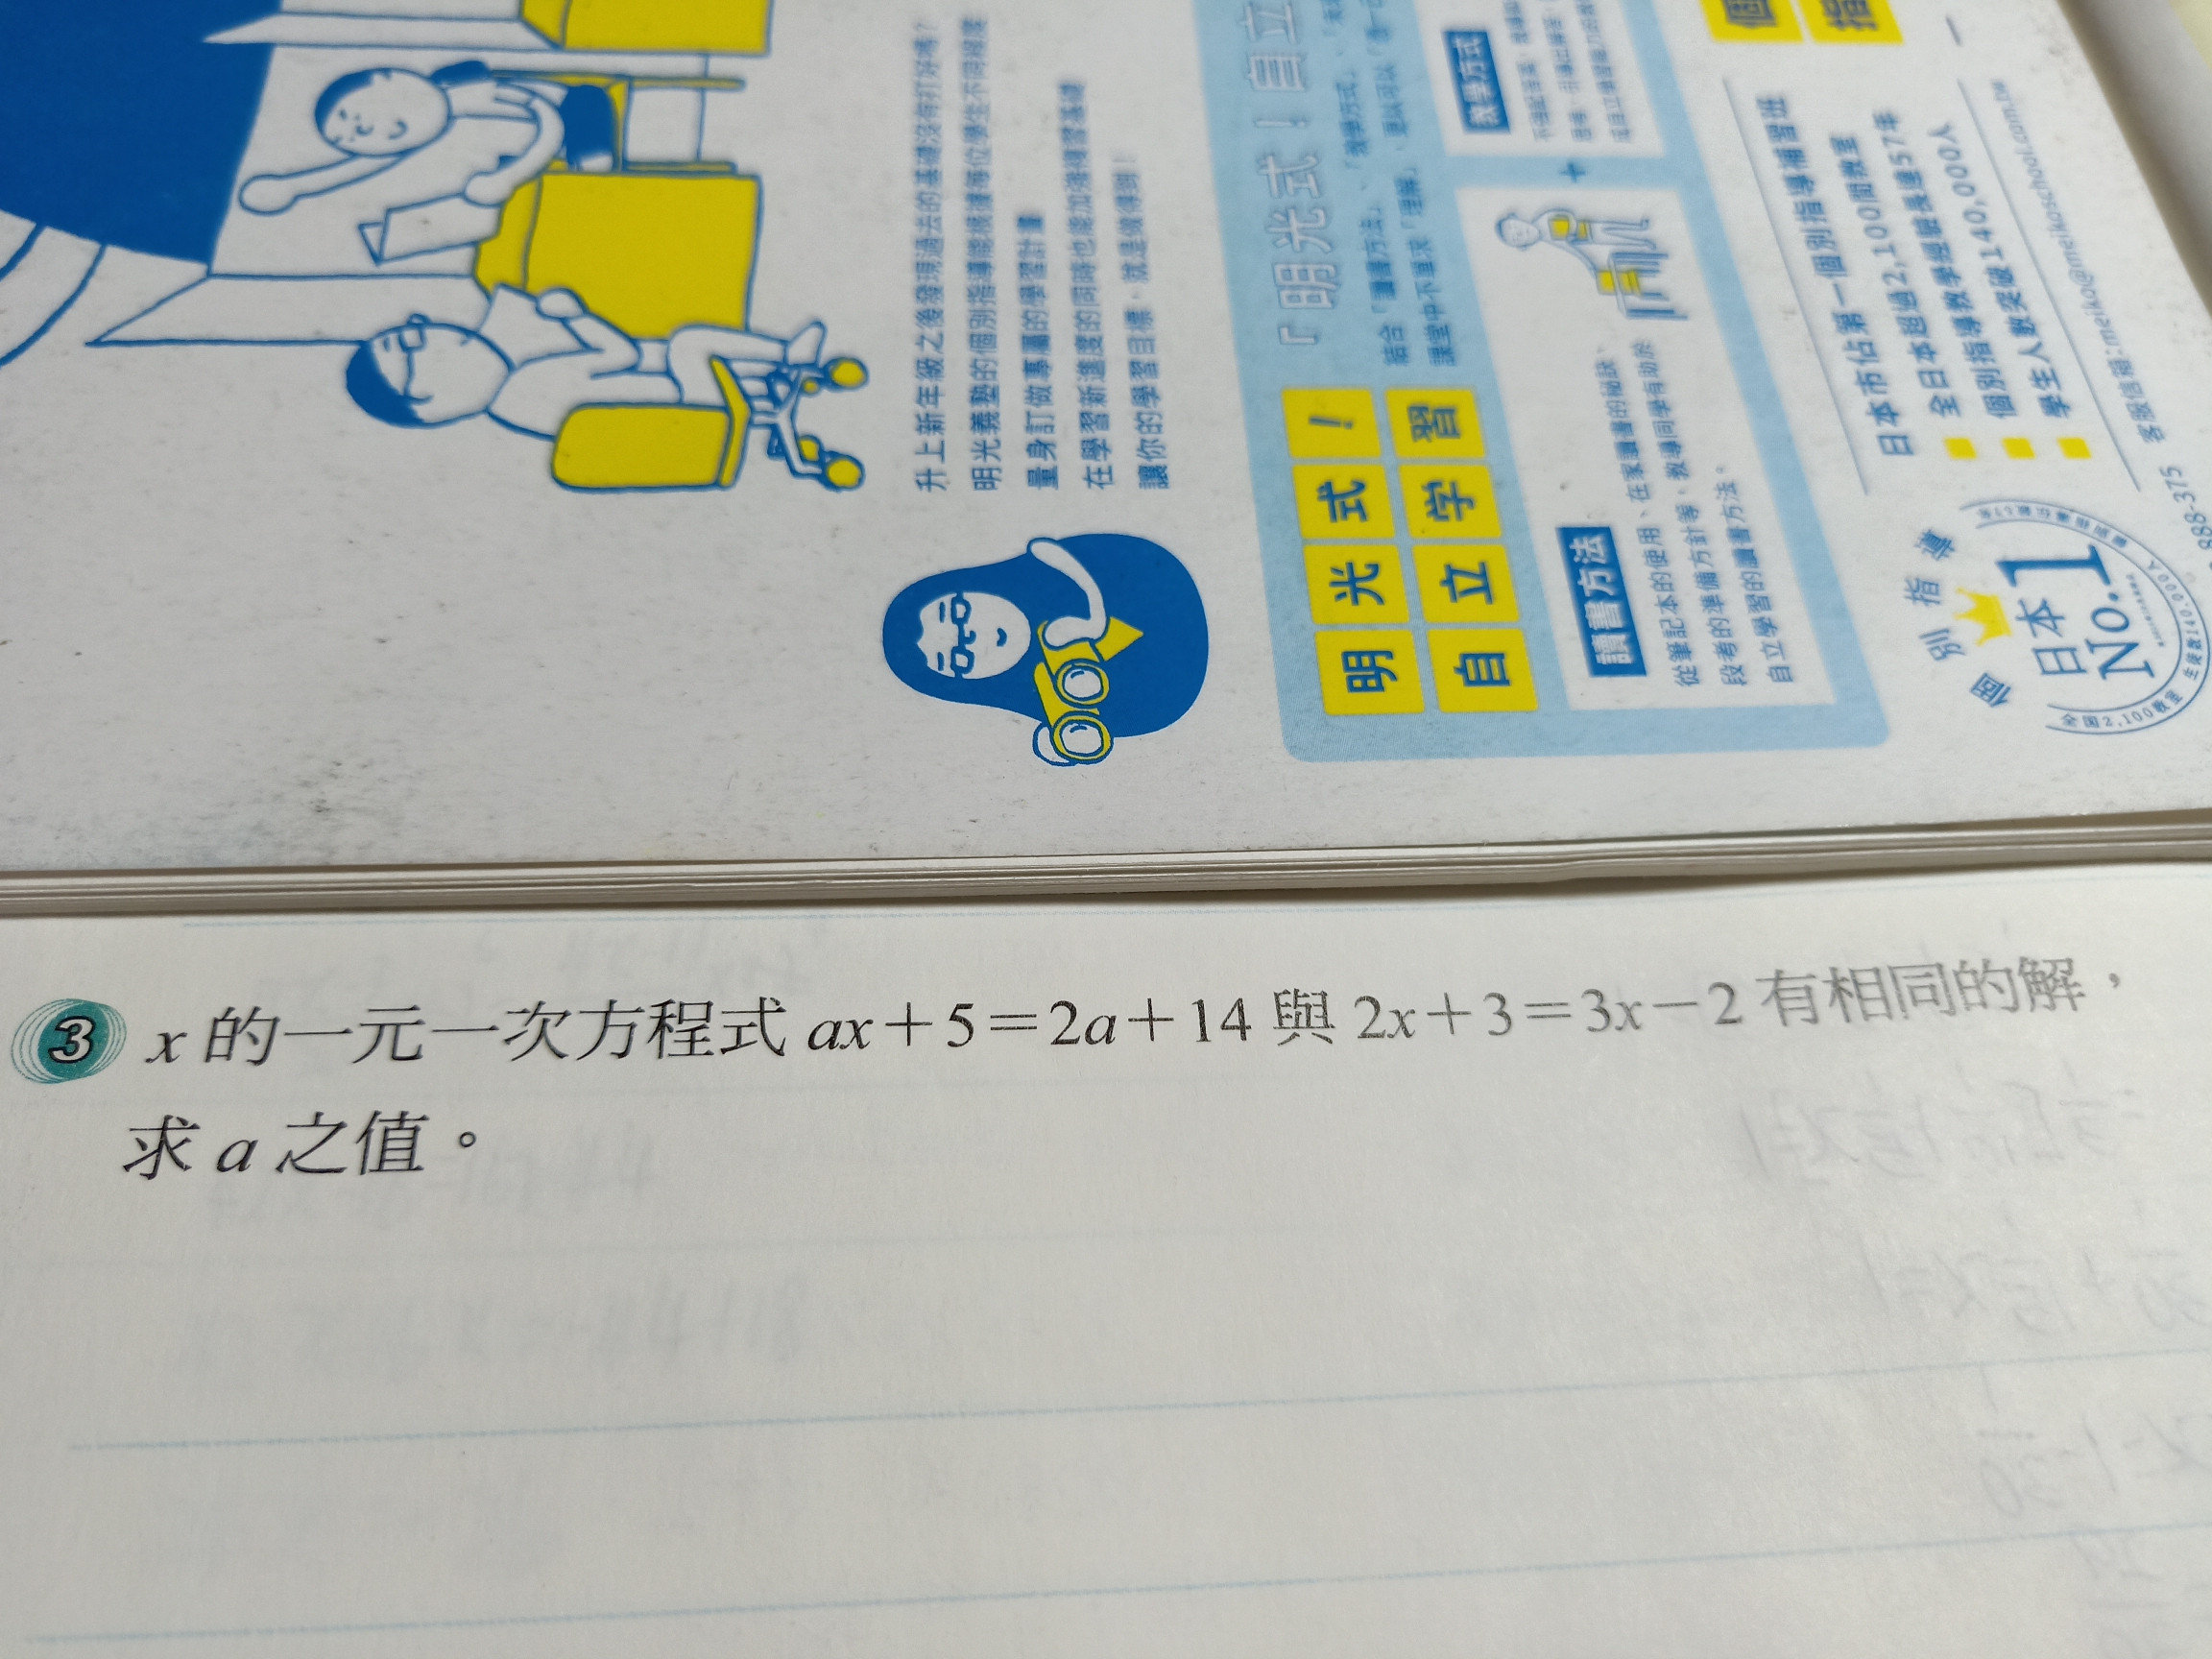 升上新年級之後發現過去的基礎沒有打好嗎?
明光義塾的個別指導能根據每位學生不同的程度
量身訂做專屬的學習計畫
在學習新進度的同時也能加強複習基礎
讓你的學習目標,就是做得到!
明光式!
自立学習
「明光式!自立
結合「讀書方法」、「教學方式」、
課堂中不單求「理解」,更以可以
讀書方法
從筆記本的使用、在家讀書的祕訣、
段考的準備方針等,教導同學有助於
自立學習的讀書方法。
+
教學方式
個
指
個別指導
日本
No.1
全国2,100教室 生徒数140,000人
日本市佔第一個別指導補習班
全日本超過2,100間教室
個別指導教學經驗長達57年
學生人數突破140,000人
客服信箱:meiko@meikoschool.com.tw
888-375
3 x 的一元一次方程式 ax+5=2a+14 與 2x+3=3x-2 有相同的解,
求 a 之值。